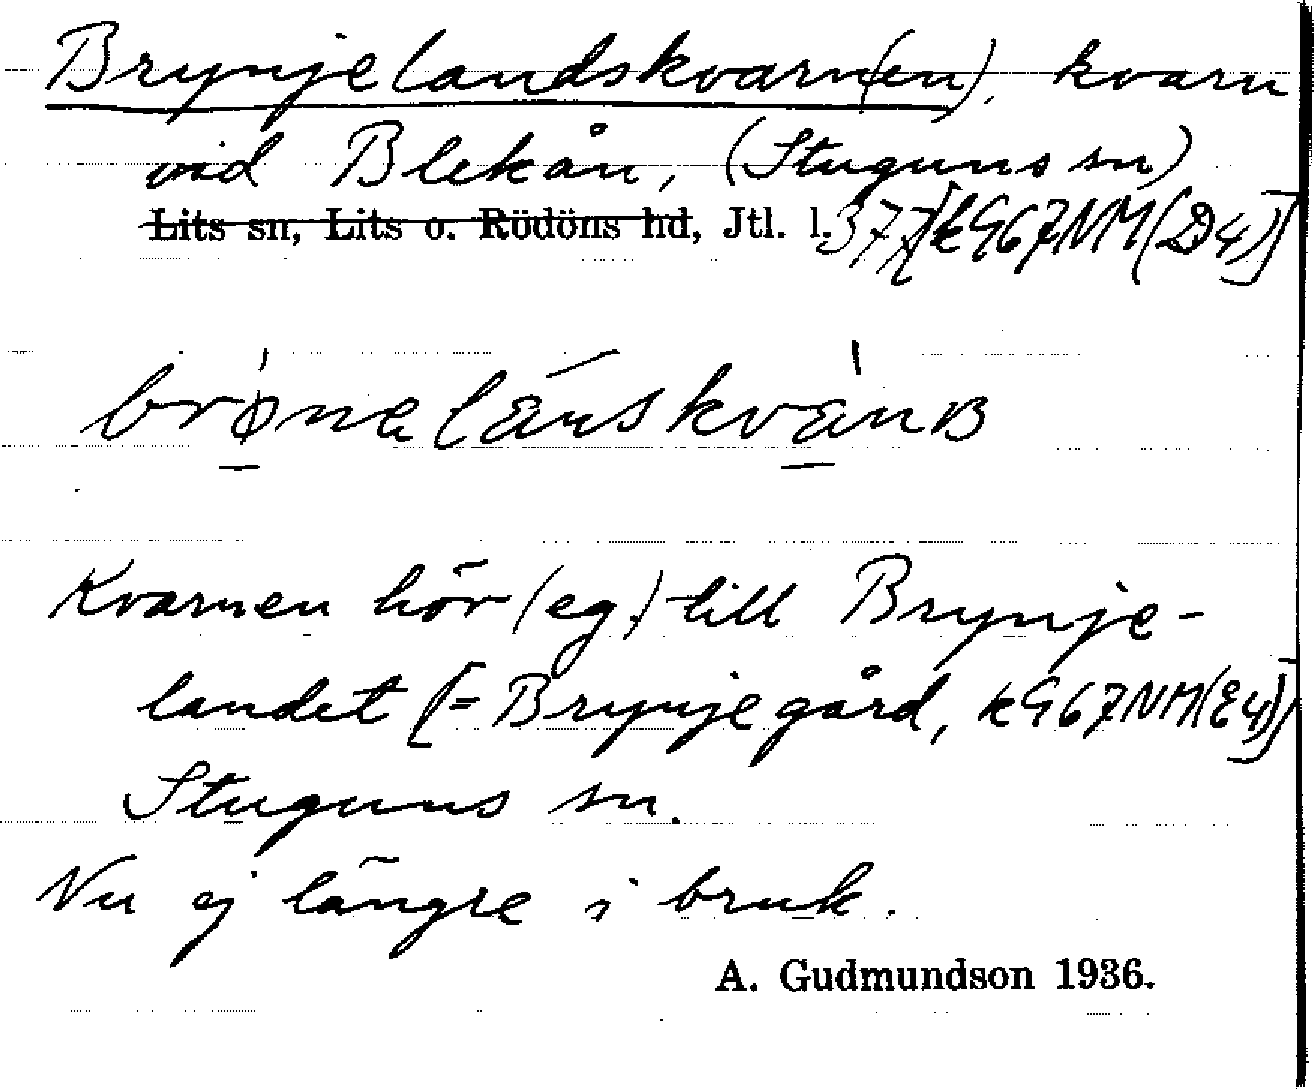 Brynjelandskvarn(en), kvarn
vid Blekån, (Stuguns sn)
Lits sn, Lits o. Rödöns hd, Jtl. l. 377 [k967NM(D4)]
Kvarnen hör (eg.) till Brynje-
landet [= Brynjegård, k967NM(E4)]
Stuguns sn.
Nu ej längre i bruk.
A. Gudmundson 1936.